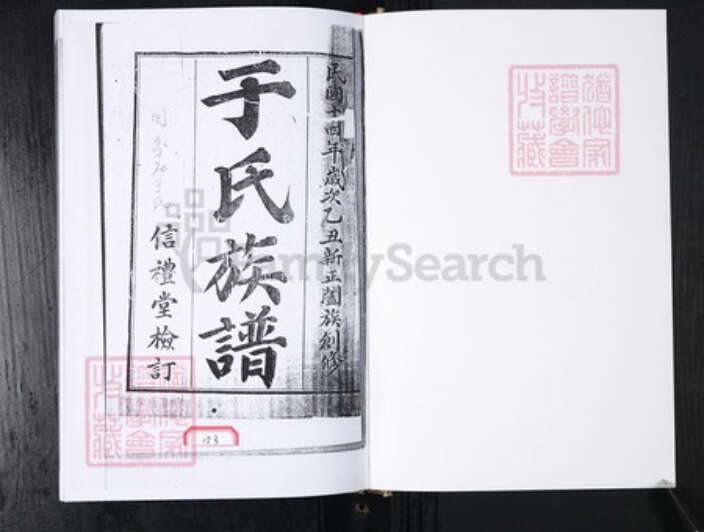 民國十四年歲次乙丑新正闔族創修
于氏族譜
信禮堂檢訂
153
FamilySearch